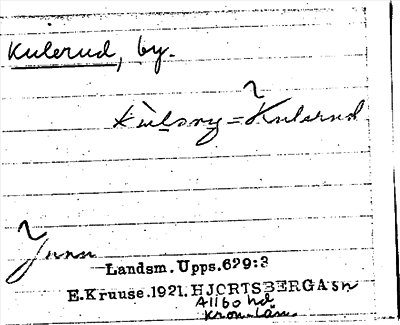 Kulerud, by.
Kulerud
Landsm. Upps. 629:3
E. Kruuse. 1921. HJORTSBERGA sn
Allbo hd
Kron. län